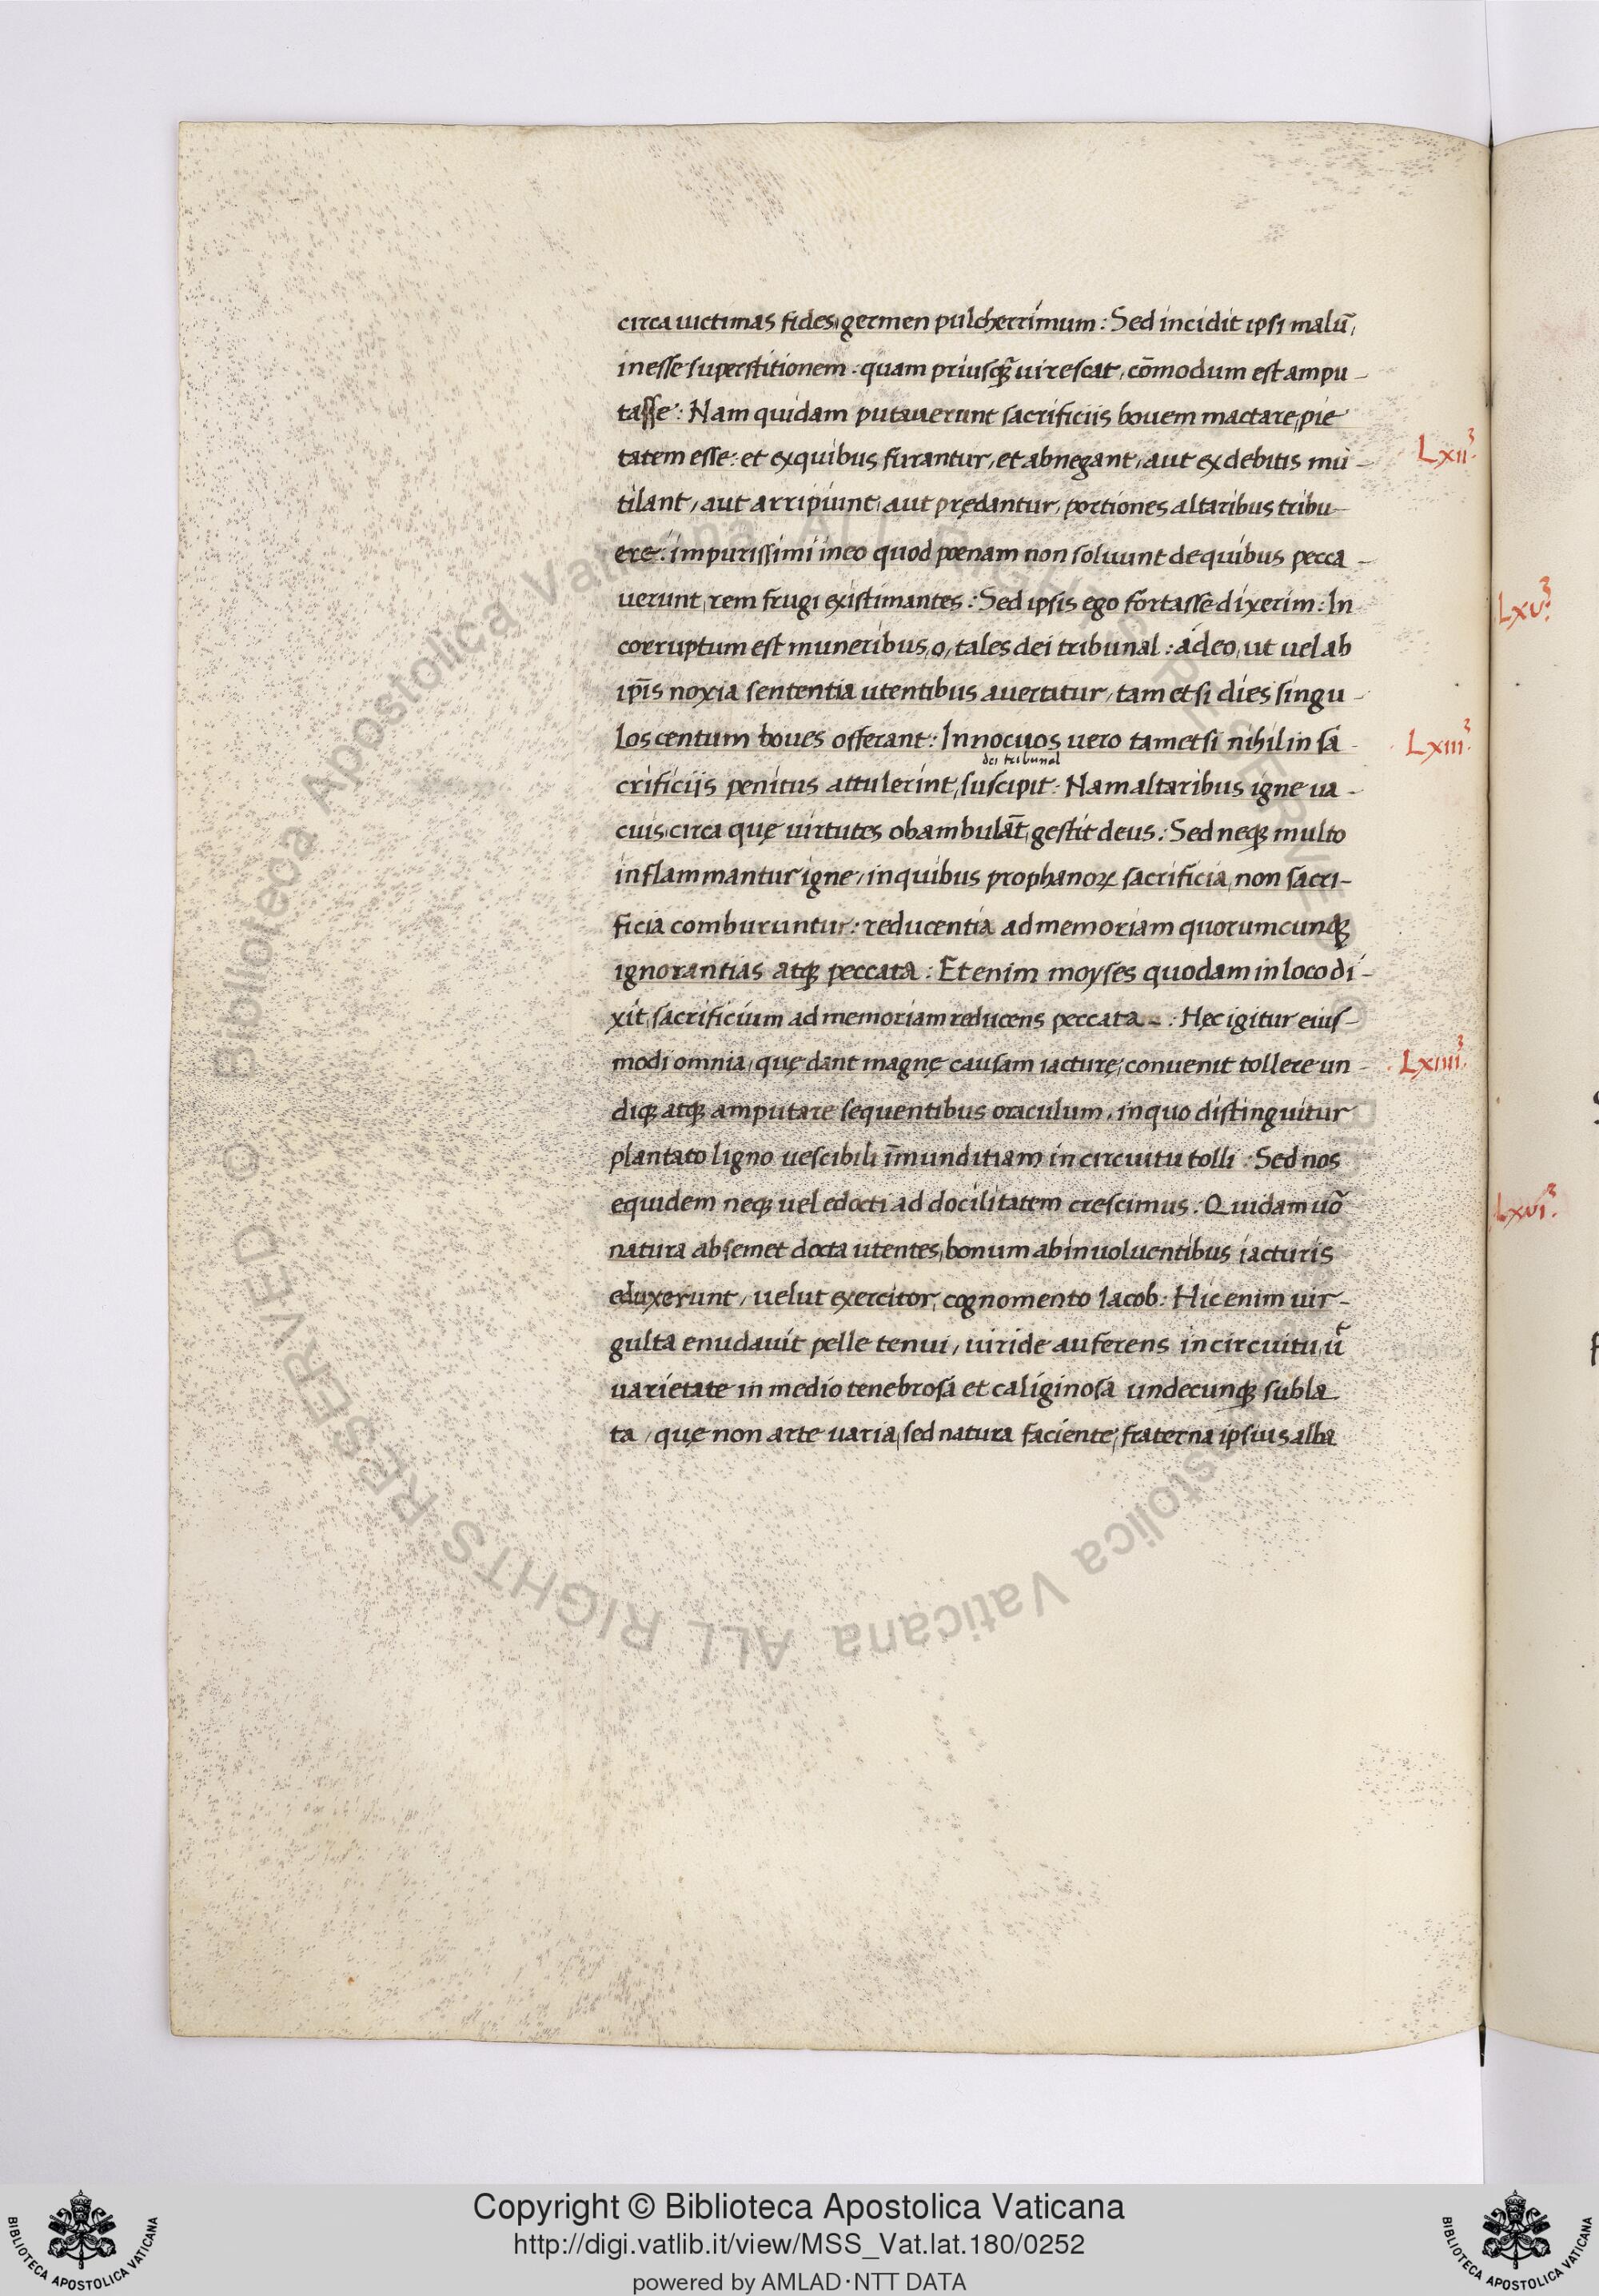 circa uictimas fides, germen pulcherrimum: Sed incidit ipsi malū,
inesse superstitionem: quam priusqꝫ̃ uirescat, cōmodum est ampu-
tasse: Nam quidam putauerunt sacrificiis bouem mactare, pie
tatem esse: et ex quibus furantur, et abnegant, aut ex debitis mu-
tilant, aut arripiunt, aut prędantur, portiones altaribus tribu-
ere: impurissimi in eo quod poenam non soluunt de quibus pecca-
uerunt, rem frugi existimantes: Sed ipsis ego fortasse dixerim: In
corruptum est muneribus, o, tales dei tribunal: adeo, ut uel ab
ip̄is noxia sententia utentibus auertatur, tam etsi dies singu-
los centum boues offerant: Innocuos uero tametsi nihil in sa-
dei tribunal
crificiis penitus attulerint, suscipit: Nam altaribus igne ua-
cuis, circa quę uirtutes obambulāt, gestit deus: Sed neqꝫ multo
inflammantur igne, in quibus prophanoꝝ sacrificia, non sacri-
ficia comburuntur: reducentia ad memoriam quorumcunqꝫ
ignorantias atqꝫ peccata: Et enim moyses quodam in loco di-
xit, sacrificium ad memoriam reducens peccata-: Hęc igitur eius-
modi omnia, quę dant magnę causam iacturę, conuenit tollere un-
diqꝫ atqꝫ amputare sequentibus oraculum, in quo distinguitur
plantato ligno uescibili īmunditiam in circuitu tolli: Sed nos
equidem neqꝫ uel edocti ad docilitatem crescimus: Quidam uō
natura ab semet docta utentes, bonum ab inuoluentibus iacturis
eduxerunt, uelut exercitor, cognomento Iacob: Hic enim uir-
gulta enudauit pelle tenui, uiride auferens in circuitu, ut
uarietate in medio tenebrosa et caliginosa undecunqꝫ subla
ta, quę non arte uaria, sed natura faciente, fraterna ipsius alba
Lxii3.
Lxiii3.
Lxiiii3.
Lxv3.
Lxvi3.
Biblioteca Apostolica Vaticana ALL RIGHTS RESERVED © Biblioteca Apostolica Vaticana ALL RIGHTS RESERVED ©
Copyright © Biblioteca Apostolica Vaticana
http://digi.vatlib.it/view/MSS_Vat.lat.180/0252
powered by AMLAD·NTT DATA
BIBLIOTECA APOSTOLICA VATICANA
BIBLIOTECA APOSTOLICA VATICANA